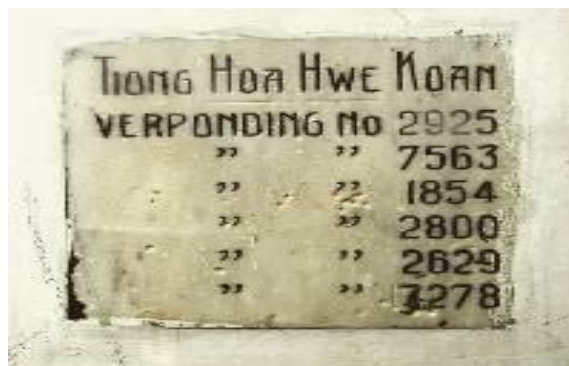 TIONG HOA HWE KOAN
VERPONDING No 2925
" " 7563
" " 1854
" " 2800
" " 2629
" " 7278